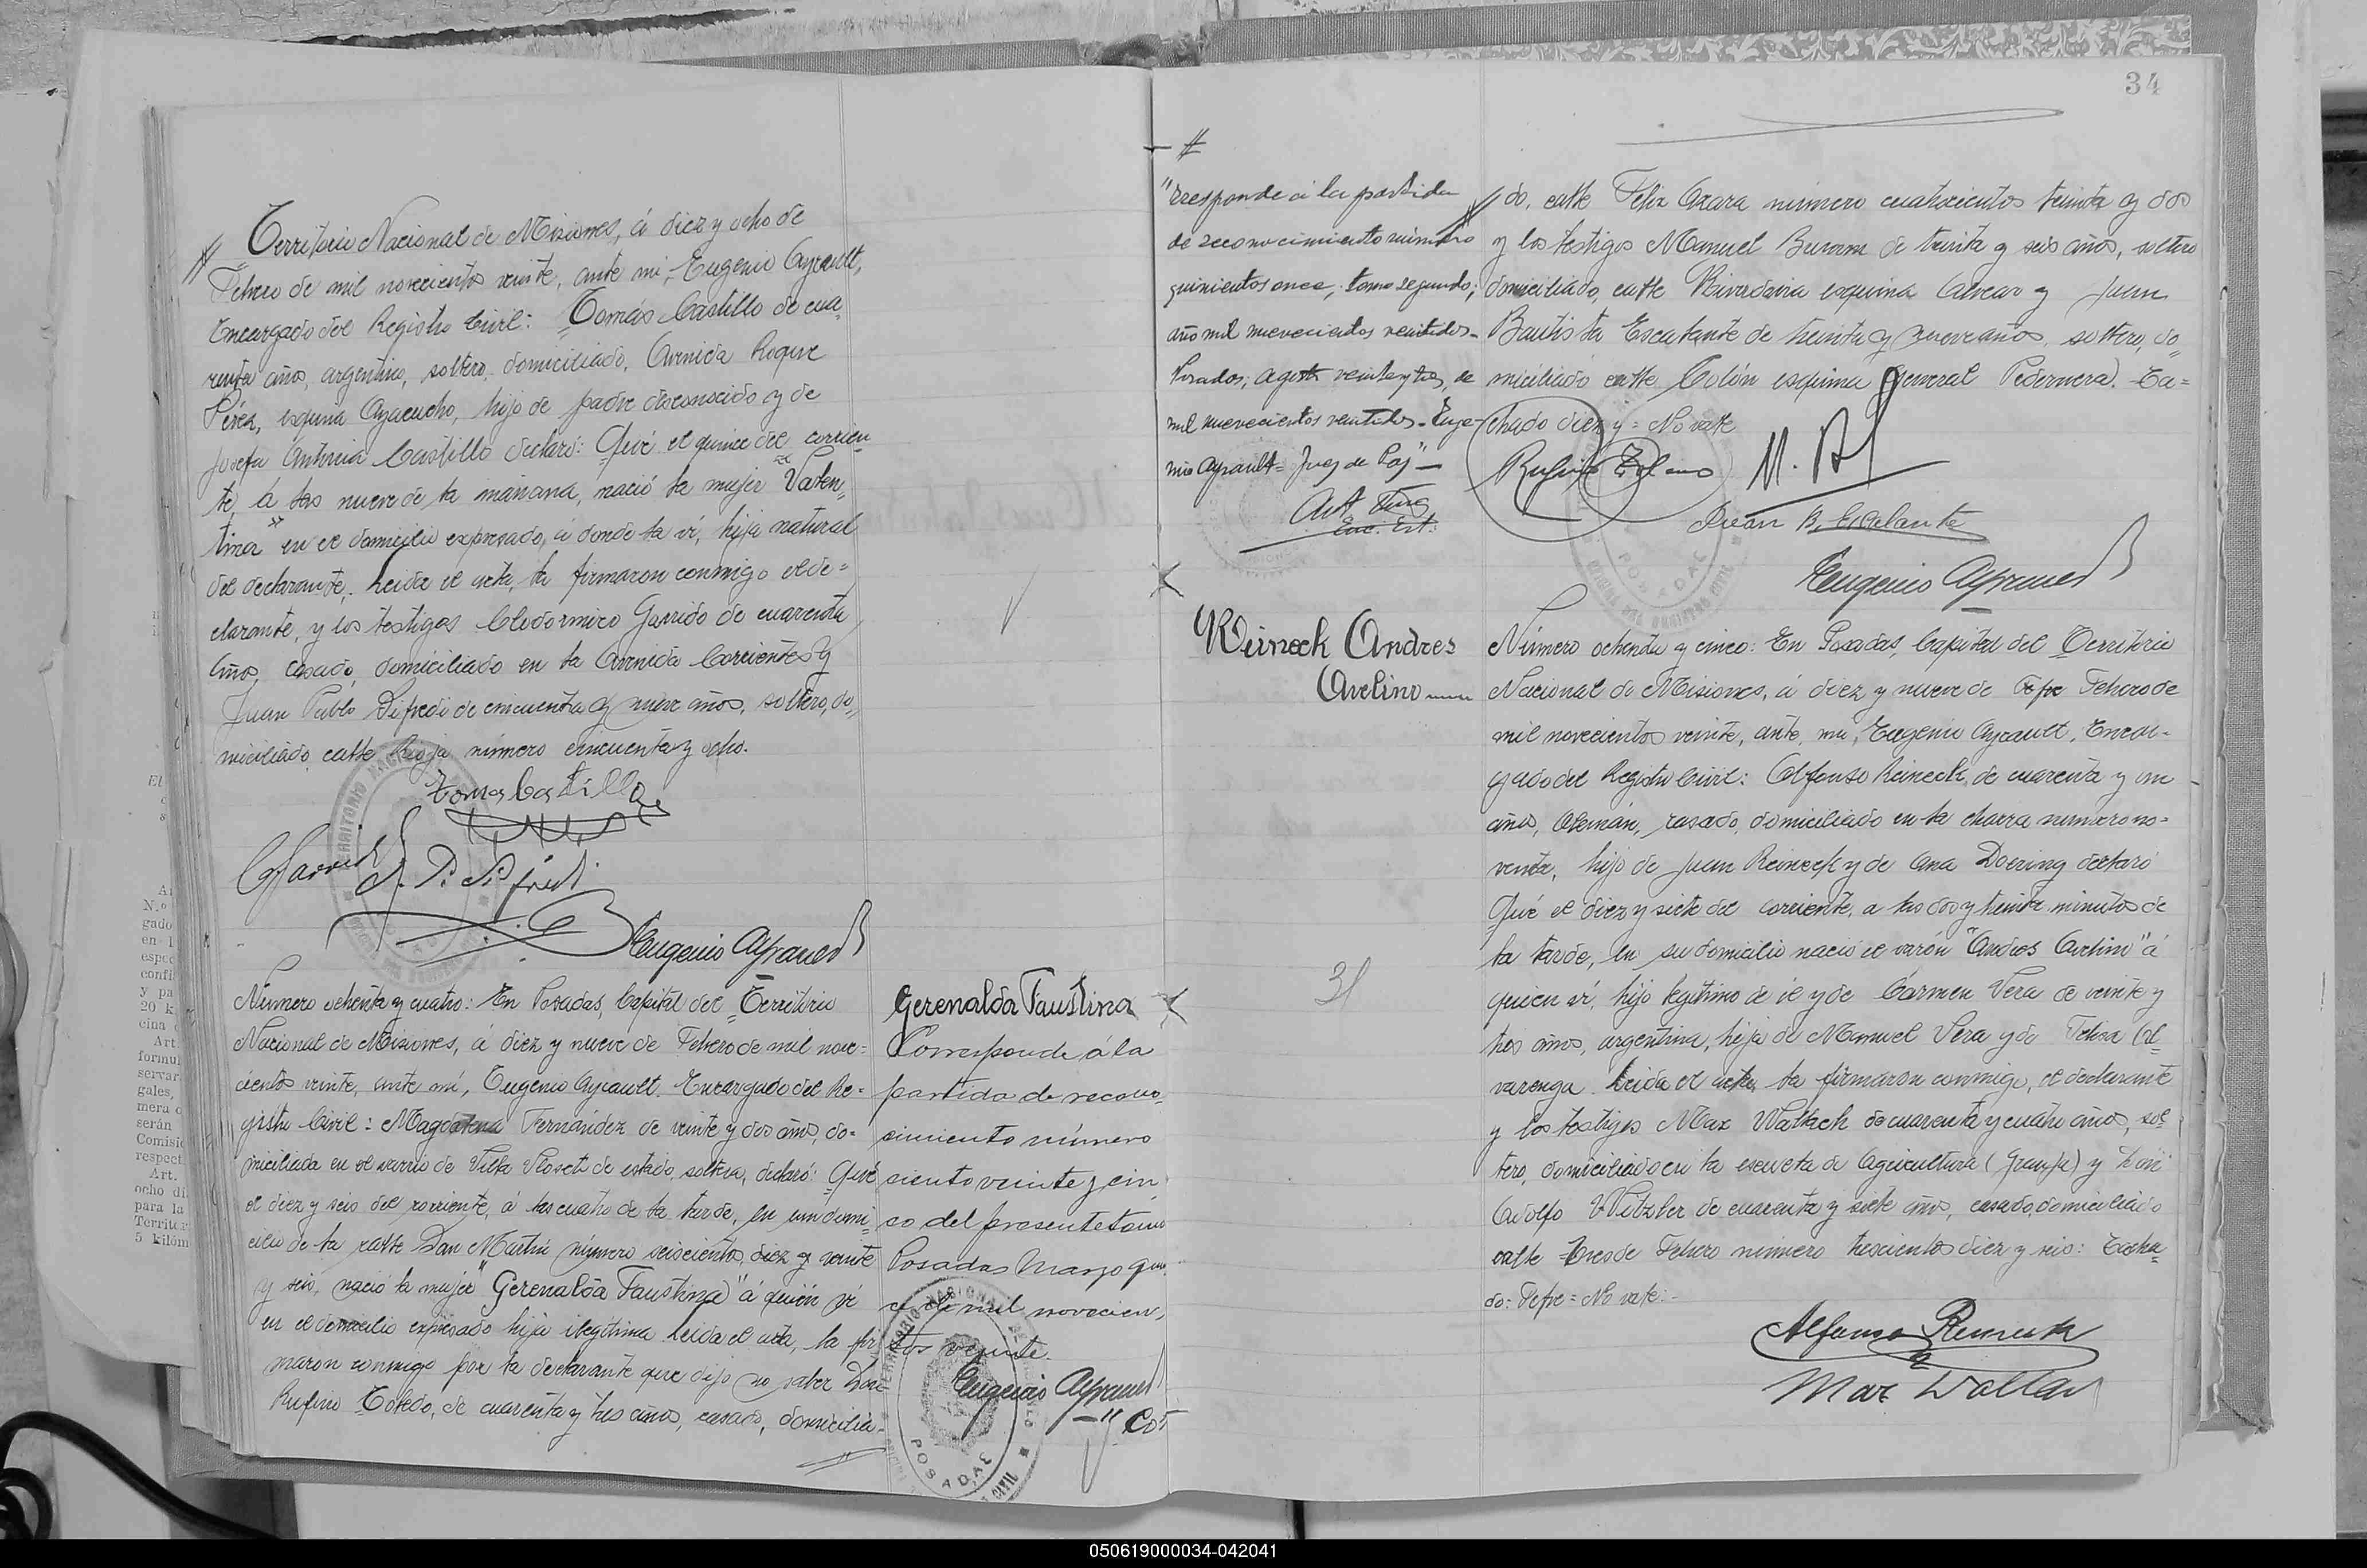 Territorio Nacional de Misiones, á diez y ocho de
Febrero de mil novecientos veinte, ante mi, Eugenio Ayrault,
Encargado del Registro Civil: Tomás Castillo de cua-
renta años, argentino, soltero, domiciliado, Avenida Roque
Pérez, esquina Ayacucho, hijo de padre desconocido y de
Josefa Antonia Castillo declaró: Qué el quince del corrien-
te, á las nueve de la mañana, nació la mujer "Valen-
tina" en el domicilio expresado, á donde la ví, hija natural
del declarante. Leida el acta, la firmaron conmigo el de-
clarante, y los testigos Clodormiro Garrido de cuarenta
años, casado, domiciliado en la Avenida Corrientes y
Juan Pablo Difredi de cincuenta y nueve años, soltero, do-
miciliado calle Rioja número cincuenta y ocho.
Tomas Castillo
C Garrido
J. P. Difredi
Eugenio Ayrault
Número ochenta y cuatro: En Posadas, Capital del Territorio
Nacional de Misiones, á diez y nueve de Febrero de mil nove-
cientos veinte, ante mí, Eugenio Ayrault, Encargado del Re-
gistro Civil: Magdalena Fernández de veinte y dos años, do-
miciliada en el barrio de Villa de estado, soltera, declaró: Qué
el diez y seis del corriente, á las cuatro de la tarde, en un domi-
cilio de la calle San Martín número seiscientos, diez y veinte
y seis, nació la mujer "Gerenalda Faustina" á quién ví
en el domicilio expresado hija ilegítima Leida el acta, la fir
maron conmigo por la declarante que dijo no saber Don
Rufino Toledo, de cuarenta y tres años, casado, domicilia-
Gerenalda Faustina
Corresponde á la
partida de recono-
simiento número
ciento veinte y cin-
co del presente tomo
Posadas Marzo
de mil novecien,
tos veinte.
Eugenio Ayrault
"Co
POSADAS
34
"rresponde á la partida
de reconocimiento número
quinientos once, tomo segundo,
año mil novecientos veintidos-
Posadas, agosto veinte y tres, de
mil nuevecientos veintidos - Euge-
nio Ayrault= Juez de Paz"-
Enc. Est.
do, calle Felix Azara número cuatrocientos treinta y dos
y los testigos Manuel de treinta y seis años, soltero
domiciliado, calle Rivadavia esquina Alvear y Juan
Bautista Escalante de treinta y nueve años, soltero, do-
miciliado calle Colón esquina General Pedernera. Ta=
chado diez y = No vale
Rufino Toledo
Juan B. Escalante
Eugenio Ayrault
POSADAS
Reineck Andres
Avelino
31
Número ochenta y cinco: En Posadas, Capital del Territorio
Nacional de Misiones, á diez y nueve de Fefre Febrero de
mil novecientos veinte, ante, mi, Eugenio Ayrault, Encar-
gado del Registro Civil: Alfonso Reineck, de cuarenta y un
años, Alemán, casado, domiciliado en la chacra número no-
venta, hijo de Juan Reineck y de Ana Doering declaró
Qué el diez y siete del corriente, a las dos y treinta minutos de
la tarde, en su domicilio nació el varón "Andres Avelino" á
quien ví, hijo legítimo de él y de Cármen Vera de veinte y
tres años, argentina, hija de Manuel Vera y de Felisa Al-
varenga. Leida el acta, la firmaron conmigo, el declarante
y los testigos Max Wallach de cuarenta y cuatro años, sol
tero, domiciliado en la escuela de Agricultura (Granja) y Don
Adolfo Witzler de cuarenta y siete años, casado, domiciliado
calle Tres de Febrero número trescientos diez y seis: Tacha-
do: Fefre = No vale:-
Alfonso Reineck
Max Wallach
El
N.o
gado
en l
espec
confi
y pa
20 k
cina
Art
formul
servar
gales,
mera
serán
Comisi
respect
Art.
ocho dí
para la
Territor
5 kilóm
050619000034-042041